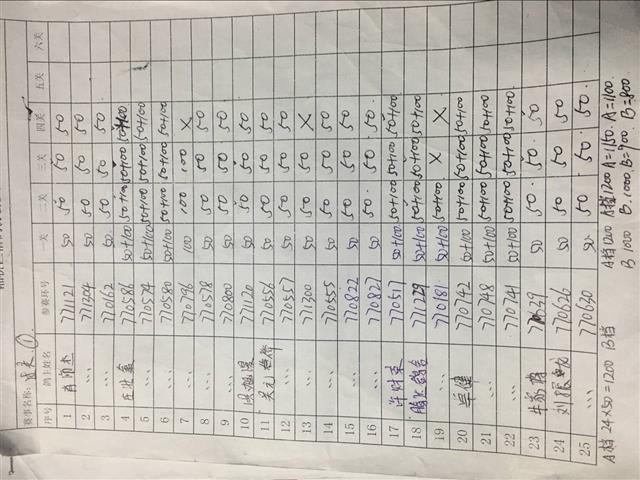 赛事名称: ①
序号 鸽主姓名 参赛环号 一关 二关 三关 四关 五关 六关
1 771121 50 50 50 50
2 ... 771304 50 50 50 50
3 ... 770162 50 50 50 50
4 770586 50+100 50+100 50+100 50+100
5 ... 770574 50+100 50+100 50+100 50+100
6 ... 770580 50+100 50+100 50+100 50+100
7 ... 770796 100 100 100 X
8 ... 770578 50 50 50 50
9 ... 770800 50 50 50 50
10 771120 50 50 50 50
11 770556 50 50 50 50
12 ... 770557 50 50 50 50
13 ... 771300 50 50 50 X
14 ... 770555 50 50 50 50
15 ... 770822 50 50 50 50
16 ... 770827 50 50 50 50
17 770517 50+100 50+100 50+100 50+100
18 771229 50+100 50+100 50+100 50+100
19 ... 770181 50+100 50+100 X X
20 单健 770742 50+100 50+100 50+100 50+100
21 ... 770748 50+100 50+100 50+100 50+100
22 ... 770741 50+100 50+100 50+100 50+100
23 50 50 50 50
24 770626 50 50 50 50
25 ... 770630 50 50 50 50
A档 24×50=1200 B档 A档1200 A档1200 A=1150 A=1100
B 1000 B 1000 B=900 B=800